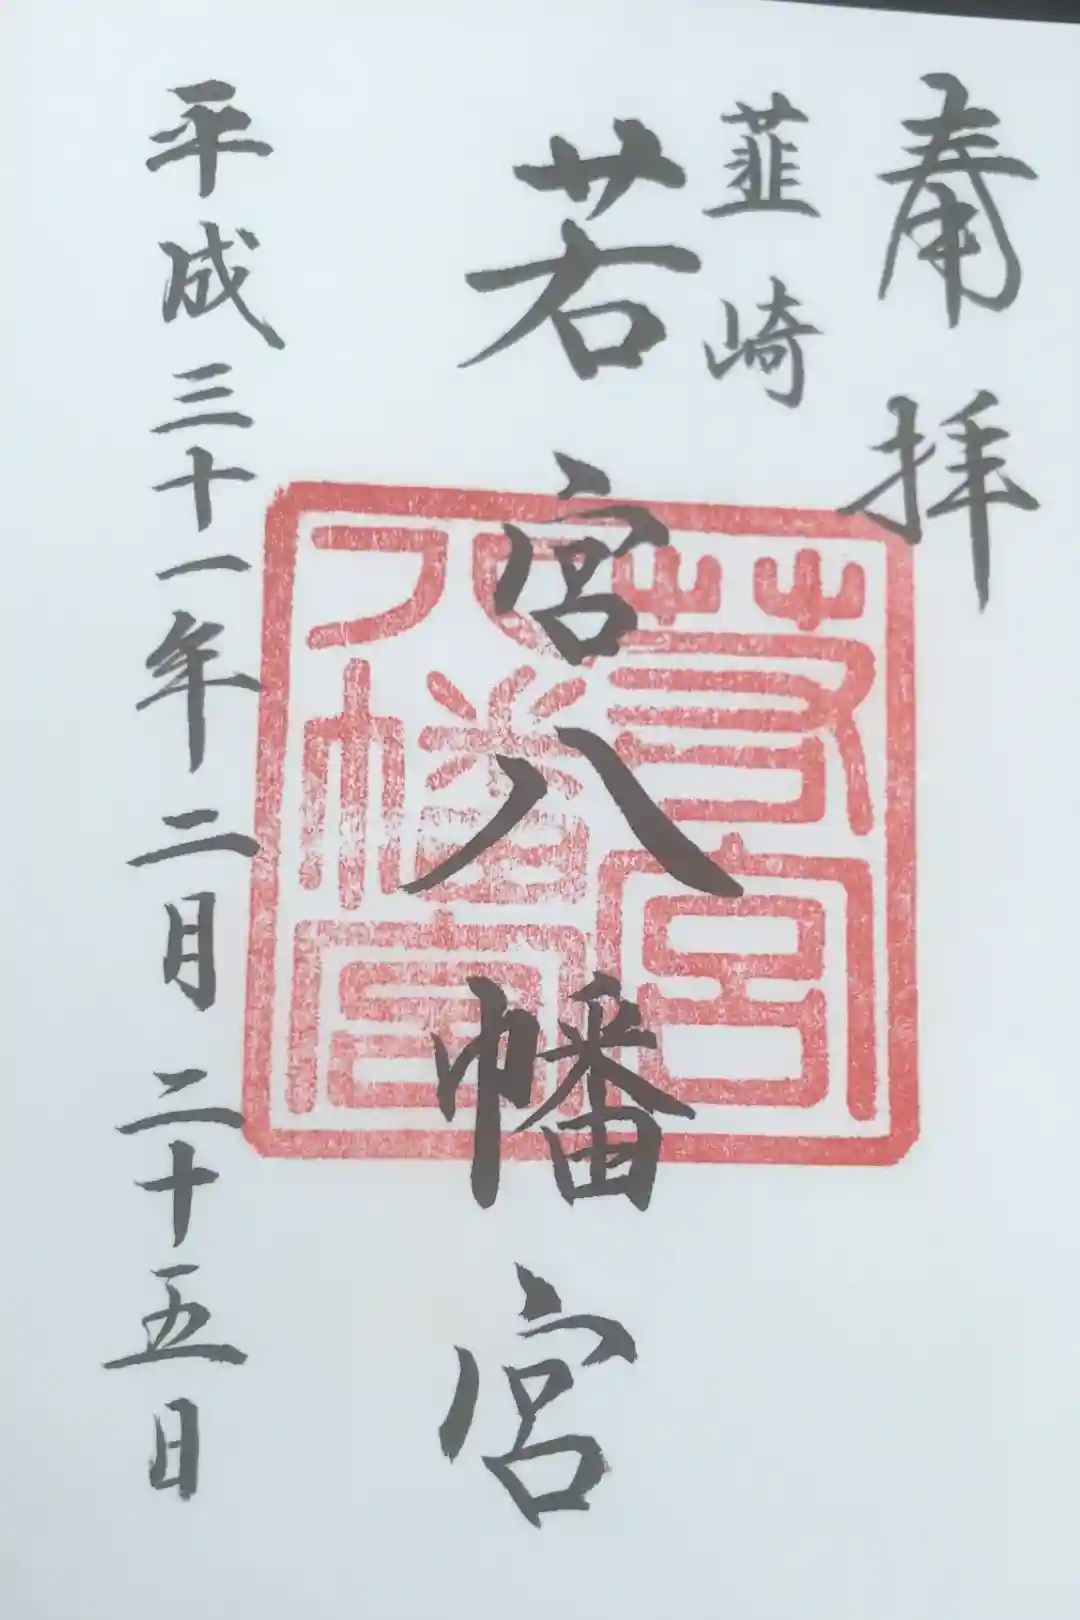 奉拝
韮崎
若宮八幡宮
平成三十一年二月二十五日
若宮
八幡宮